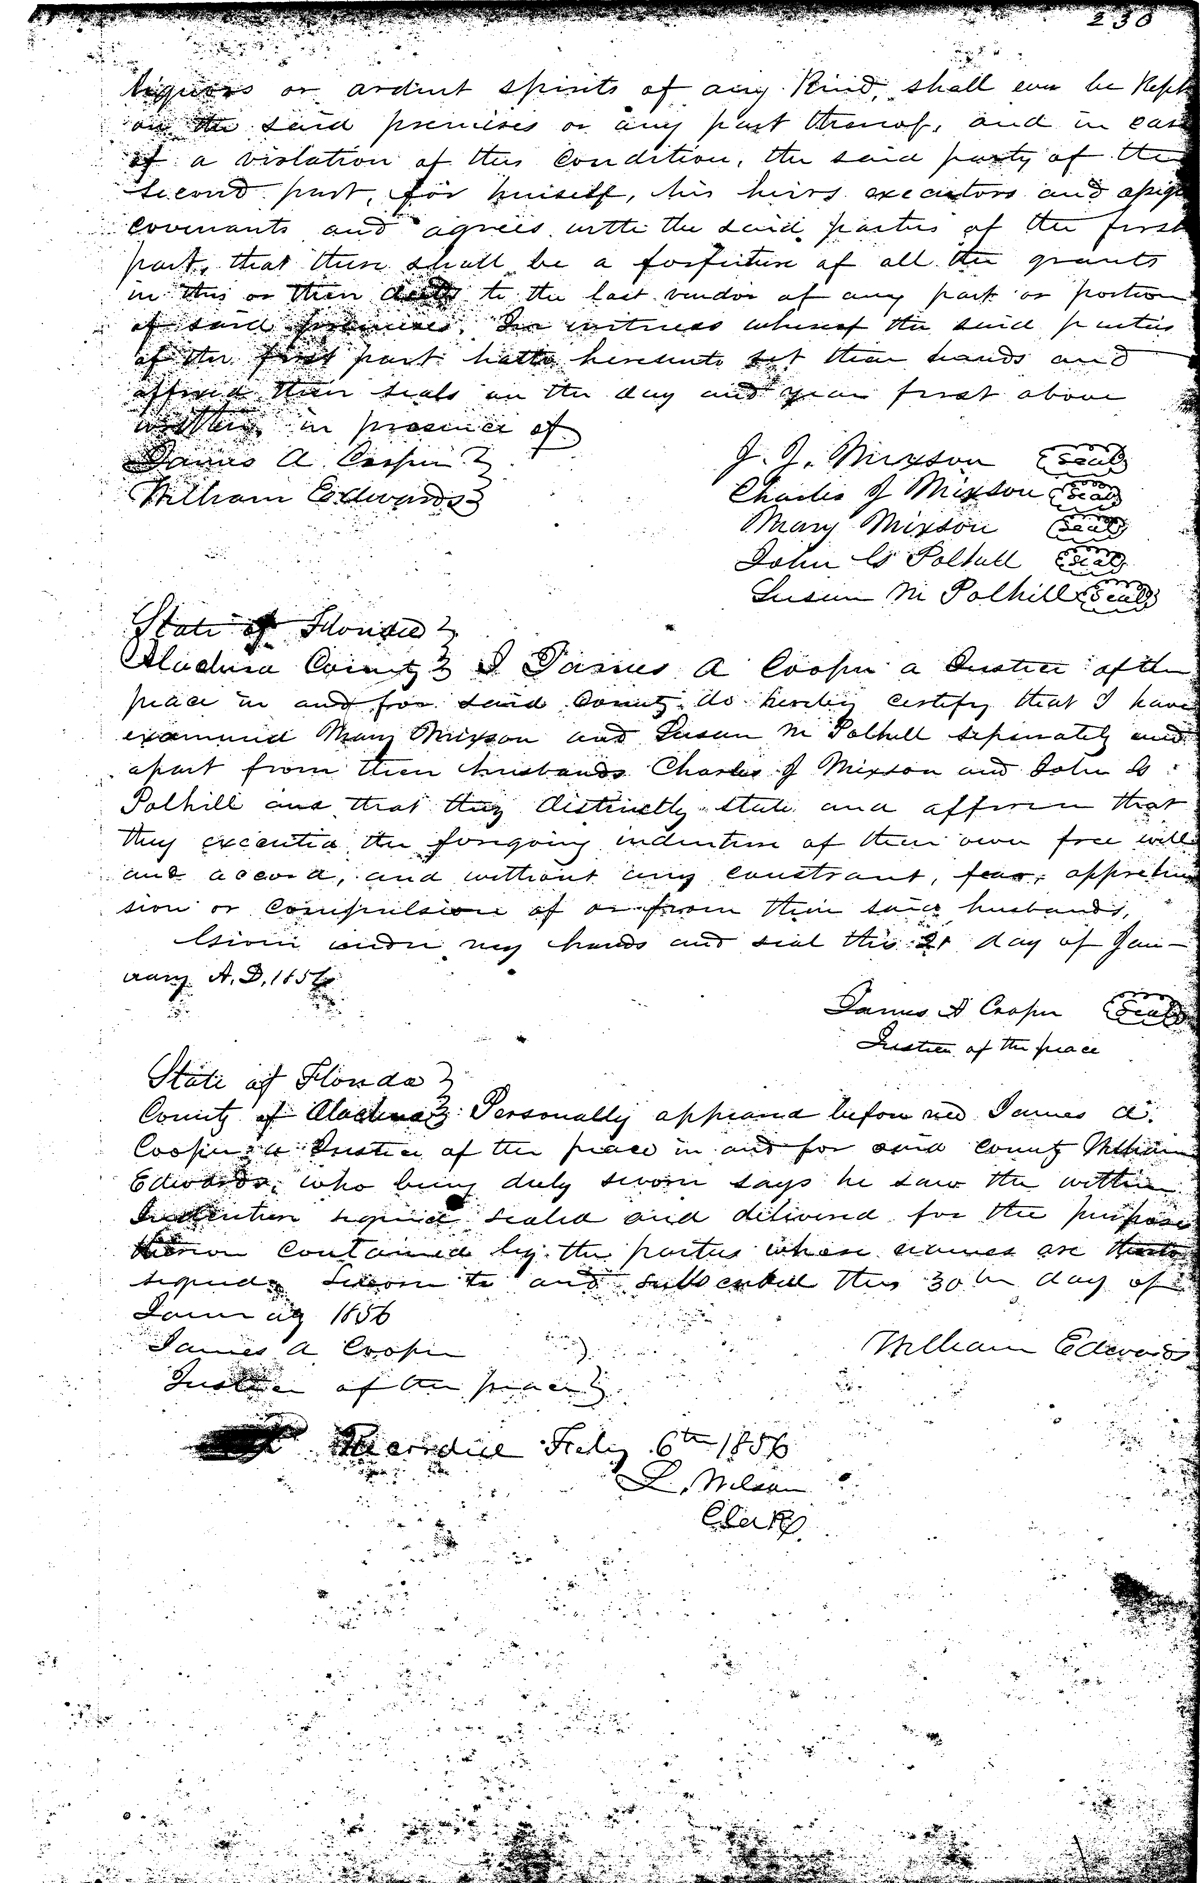 230
liquors or ardent spirits of any Kind, shall ever be Kept
on the said premises or any part thereof, and in case
of a violation of this Condition, the said party of the
second part, for himself, his heirs executors and
covenants and agrees with the said parties of the first
part, that there shall be a forfeiture of all the grants
in this or then deeds to the last vendor of any part or portion
of said premises. In witness whereof the said parties
of the first part hath hereunto set their hands and
affixed their seals on the day and year first above
written in presence of
James A Cooper }
William Edwards }
J. J. Mixson (seal)
Charles J Mixson (seal)
Mary Mixson (seal)
John G Polhill (seal)
Susan M Polhill (seal)
State of Florida }
Alachua County } I James A Cooper a Justice of the
peace in and for said County do hereby certify that I have
examined Mary Mixson and Susan M Polhill seperately and
apart from their husbands Charles J Mixson and John G
Polhill and that they distinctly state and affirm that
they executed the foregoing indenture of their own free will
and accord, and without any constraint, fear, apprehen
sion or compulsion of or from their said husbands,
Given under my hands and seal this 21 day of Jan-
uary A.D. 1856
James A Cooper (Seal)
Justice of the peace
State of Florida }
County of Alachua } Personally appeared before me James A.
Cooper a Justice of the peace in and for said County William
Edwards, who being duly sworn says he saw the within
Indenture signed sealed and delivered for the purpose
thereon contained by the parties whose names are thereto
signed. Sworn to and subscribed this 30th day of
January 1856
James A Cooper }
Justice of the peace }
William Edwards
Recorded Feby 6th 1856
L. Wilson
Clerk